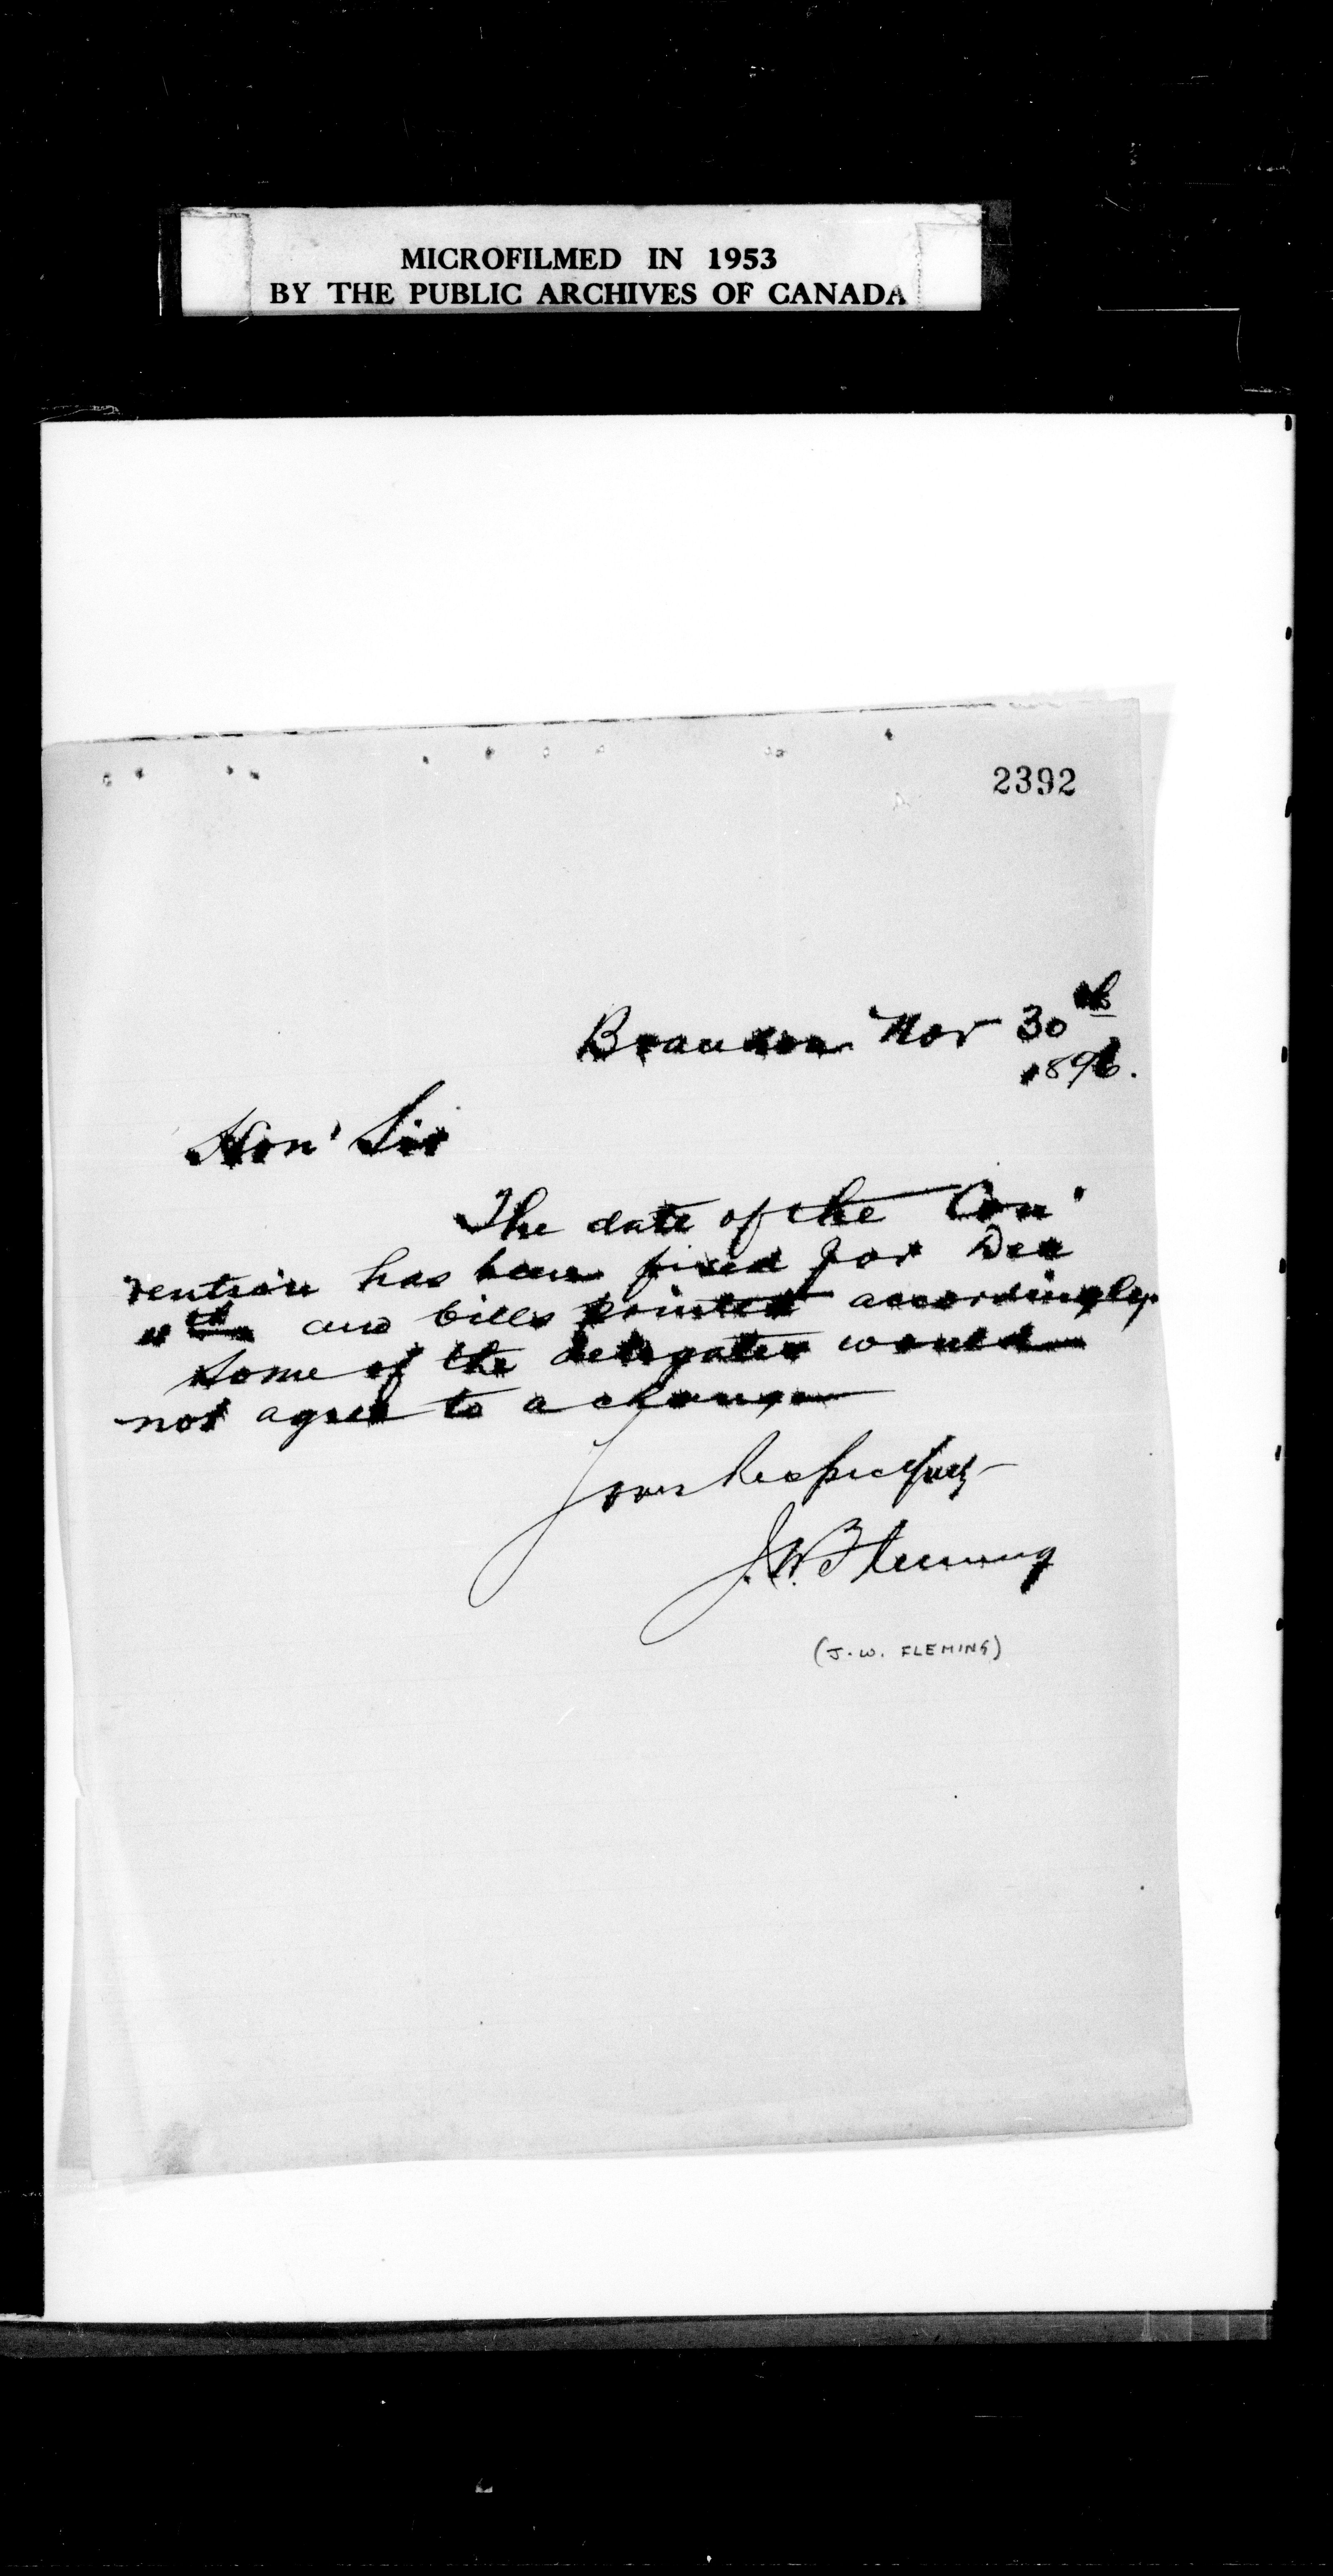 MICROFILMED IN 1953
BY THE PUBLIC ARCHIVES OF CANADA
2392
Brandon Nov 30th
1896.
Hon' Sir
The date of the Con'
vention has been fixed for Dec
11th and bills printed accordingly
Some of the delegates would
not agree to a change
Yours Respectfully
J.W. Fleming
(J.W. FLEMING)